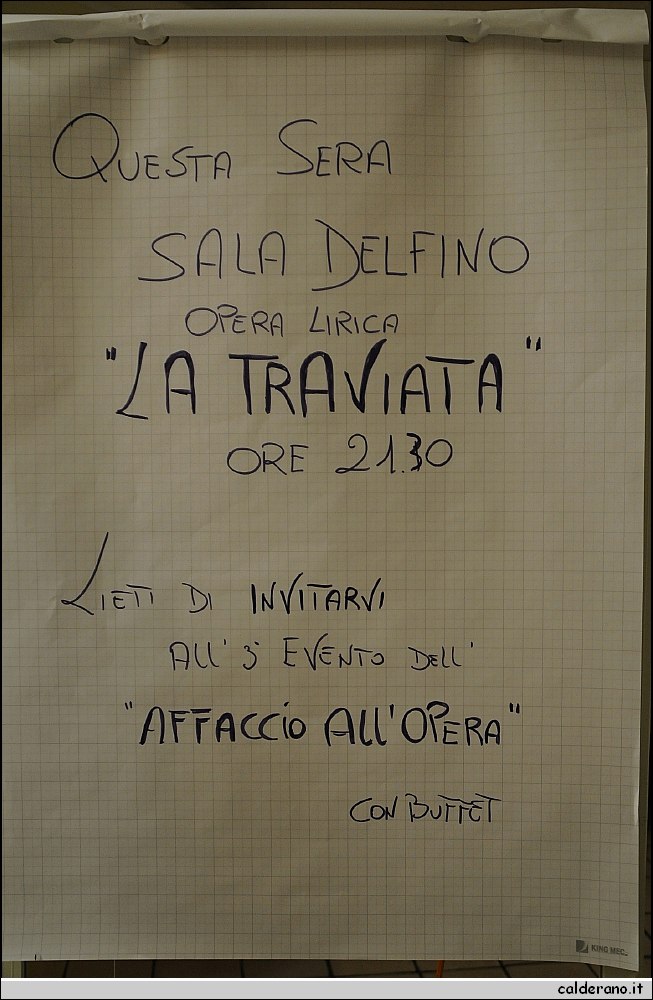 QUESTA SERA
SALA DELFINO
OPERA LIRICA
"LA TRAVIATA"
ORE 21.30
LIETI DI INVITARVI
ALL' 3° EVENTO DELL'
"AFFACCIO ALL'OPERA"
CON BUFFET
KING MEC.
calderano.it